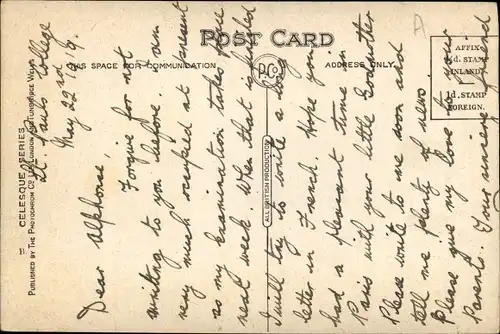 POST CARD
THIS SPACE FOR COMMUNICATION
ADDRESS ONLY.
AFFIX
½d. STAMP
INLAND.
1d. STAMP
FOREIGN.
P.Co.
A
CELESQUE SERIES
PUBLISHED BY THE PHOTOCHROM CO. LTD. LONDON AND TUNBRIDGE WELLS
ALL BRITISH PRODUCTION
St. Pauls College
May 22nd 1919
Dear Alphonse,
Forgive for not
writing to you before. I am
very much occupied at present
as my examination takes place
next week. When that is finished
I will try to write a long
letter in French. Hope you
had a pleasant time in
Paris with your little Godmother
Please write to me soon and
tell me plenty of news.
Please give my love to your
Parents. Your sincere friend